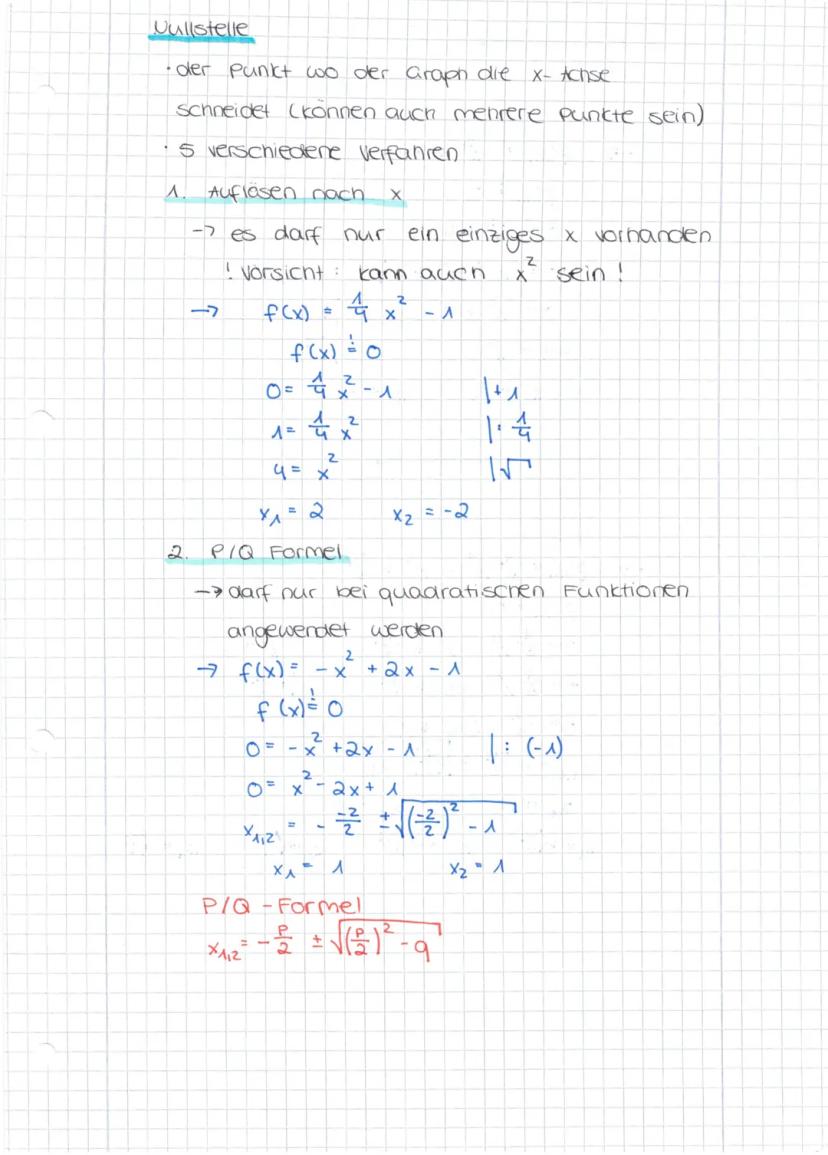 Nullstelle
· der Punkt wo der Graph die x-Achse
schneidet (können auch mehrere Punkte sein)
· 5 verschiedene Verfahren
1. Auflösen nach x
-> es darf nur ein einziges x vorhanden
! Vorsicht : kann auch x² sein !
-> f(x) = 1/4 x² - 1
f(x) != 0
0 = 1/4 x² - 1 |+1
1 = 1/4 x² |: 1/4
4 = x² |√
x₁ = 2 x₂ = -2
2. P/Q Formel
-> darf nur bei quadratischen Funktionen
angewendet werden
-> f(x) = -x² + 2x - 1
f(x) != 0
0 = -x² + 2x - 1 |: (-1)
0 = x² - 2x + 1
x₁,₂ = - -2/2 ± √((-2/2)² - 1)
x₁ = 1 x₂ = 1
P/Q - Formel
x₁,₂ = - P/2 ± √((P/2)² - q)